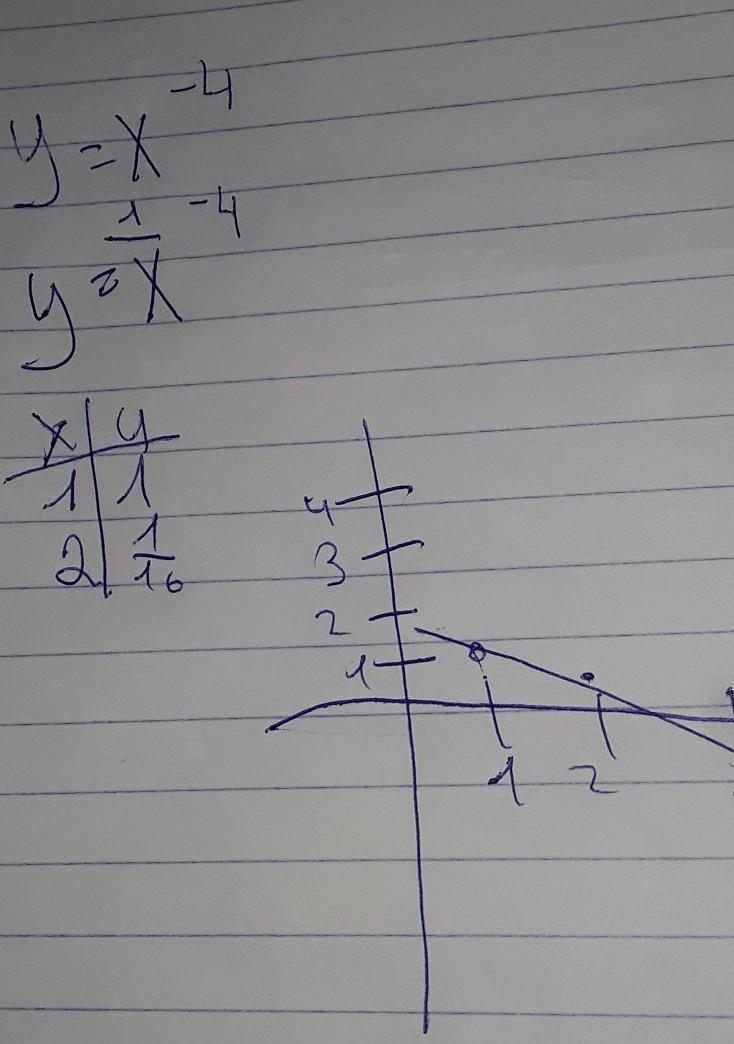 y = x⁻⁴
y = 1/x⁻⁴
x y
1 1
2 1/16
4
3
2
1
1 2